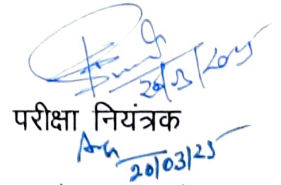 20/3/2025
परीक्षा नियंत्रक
20/03/25